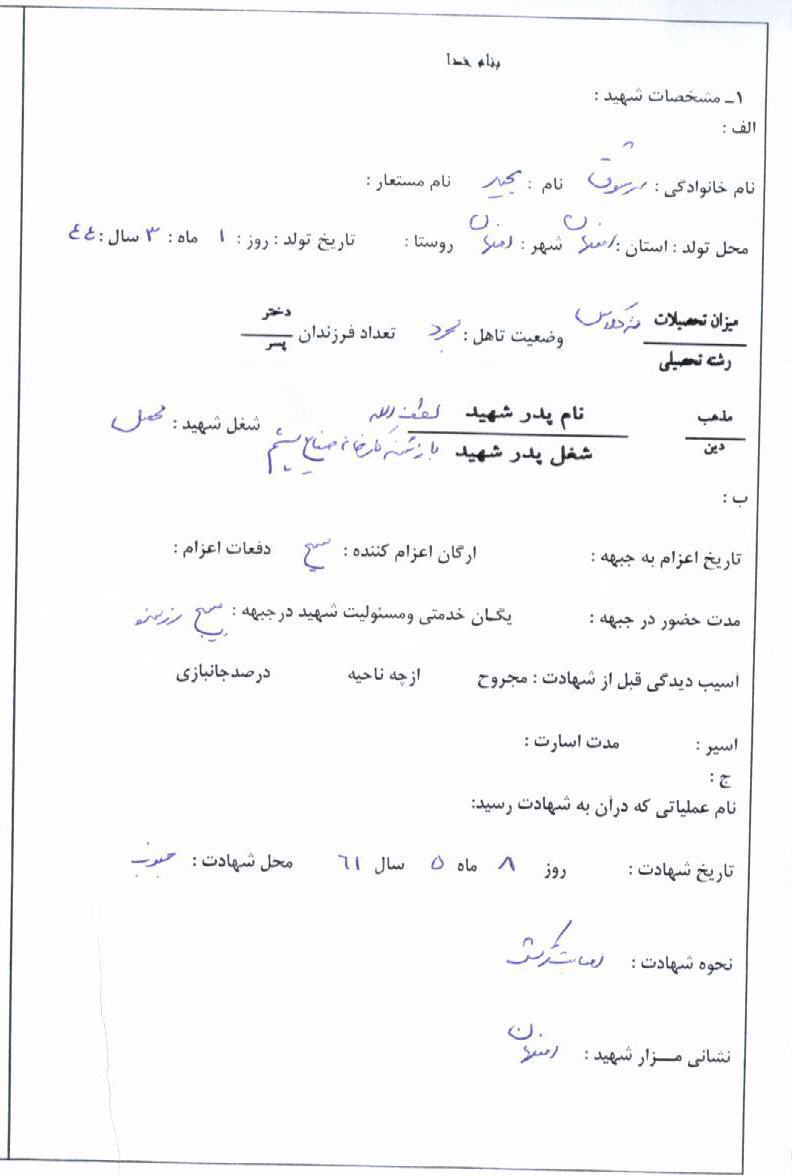 بنام خدا
۱ـ مشخصات شهید :
الف :
نام خانوادگی : نام : مجید نام مستعار :
محل تولد : استان : اصفهان شهر : اصفهان روستا : تاریخ تولد : روز : ۱ ماه : ۳ سال : ٤٤
میزان تحصیلات
رشته تحصیلی
وضعیت تاهل : مجرد تعداد فرزندان
دختر
پسر
مذهب
دین
نام پدر شهید لطف الله
شغل پدر شهید بازنشسته کارخانه صنایع پشم
شغل شهید : محصل
ب :
تاریخ اعزام به جبهه : ارگان اعزام کننده : بسیج دفعات اعزام :
مدت حضور در جبهه : یگان خدمتی ومسئولیت شهید درجبهه : بسیج رزمنده
آسیب دیدگی قبل از شهادت : مجروح ازچه ناحیه درصدجانبازی
اسیر : مدت اسارت :
ج :
نام عملیاتی که درآن به شهادت رسید:
تاریخ شهادت : روز ۸ ماه ۵ سال ٦١ محل شهادت : جنوب
نحوه شهادت : اصابت ترکش
نشانی مـــزار شهید : اصفهان